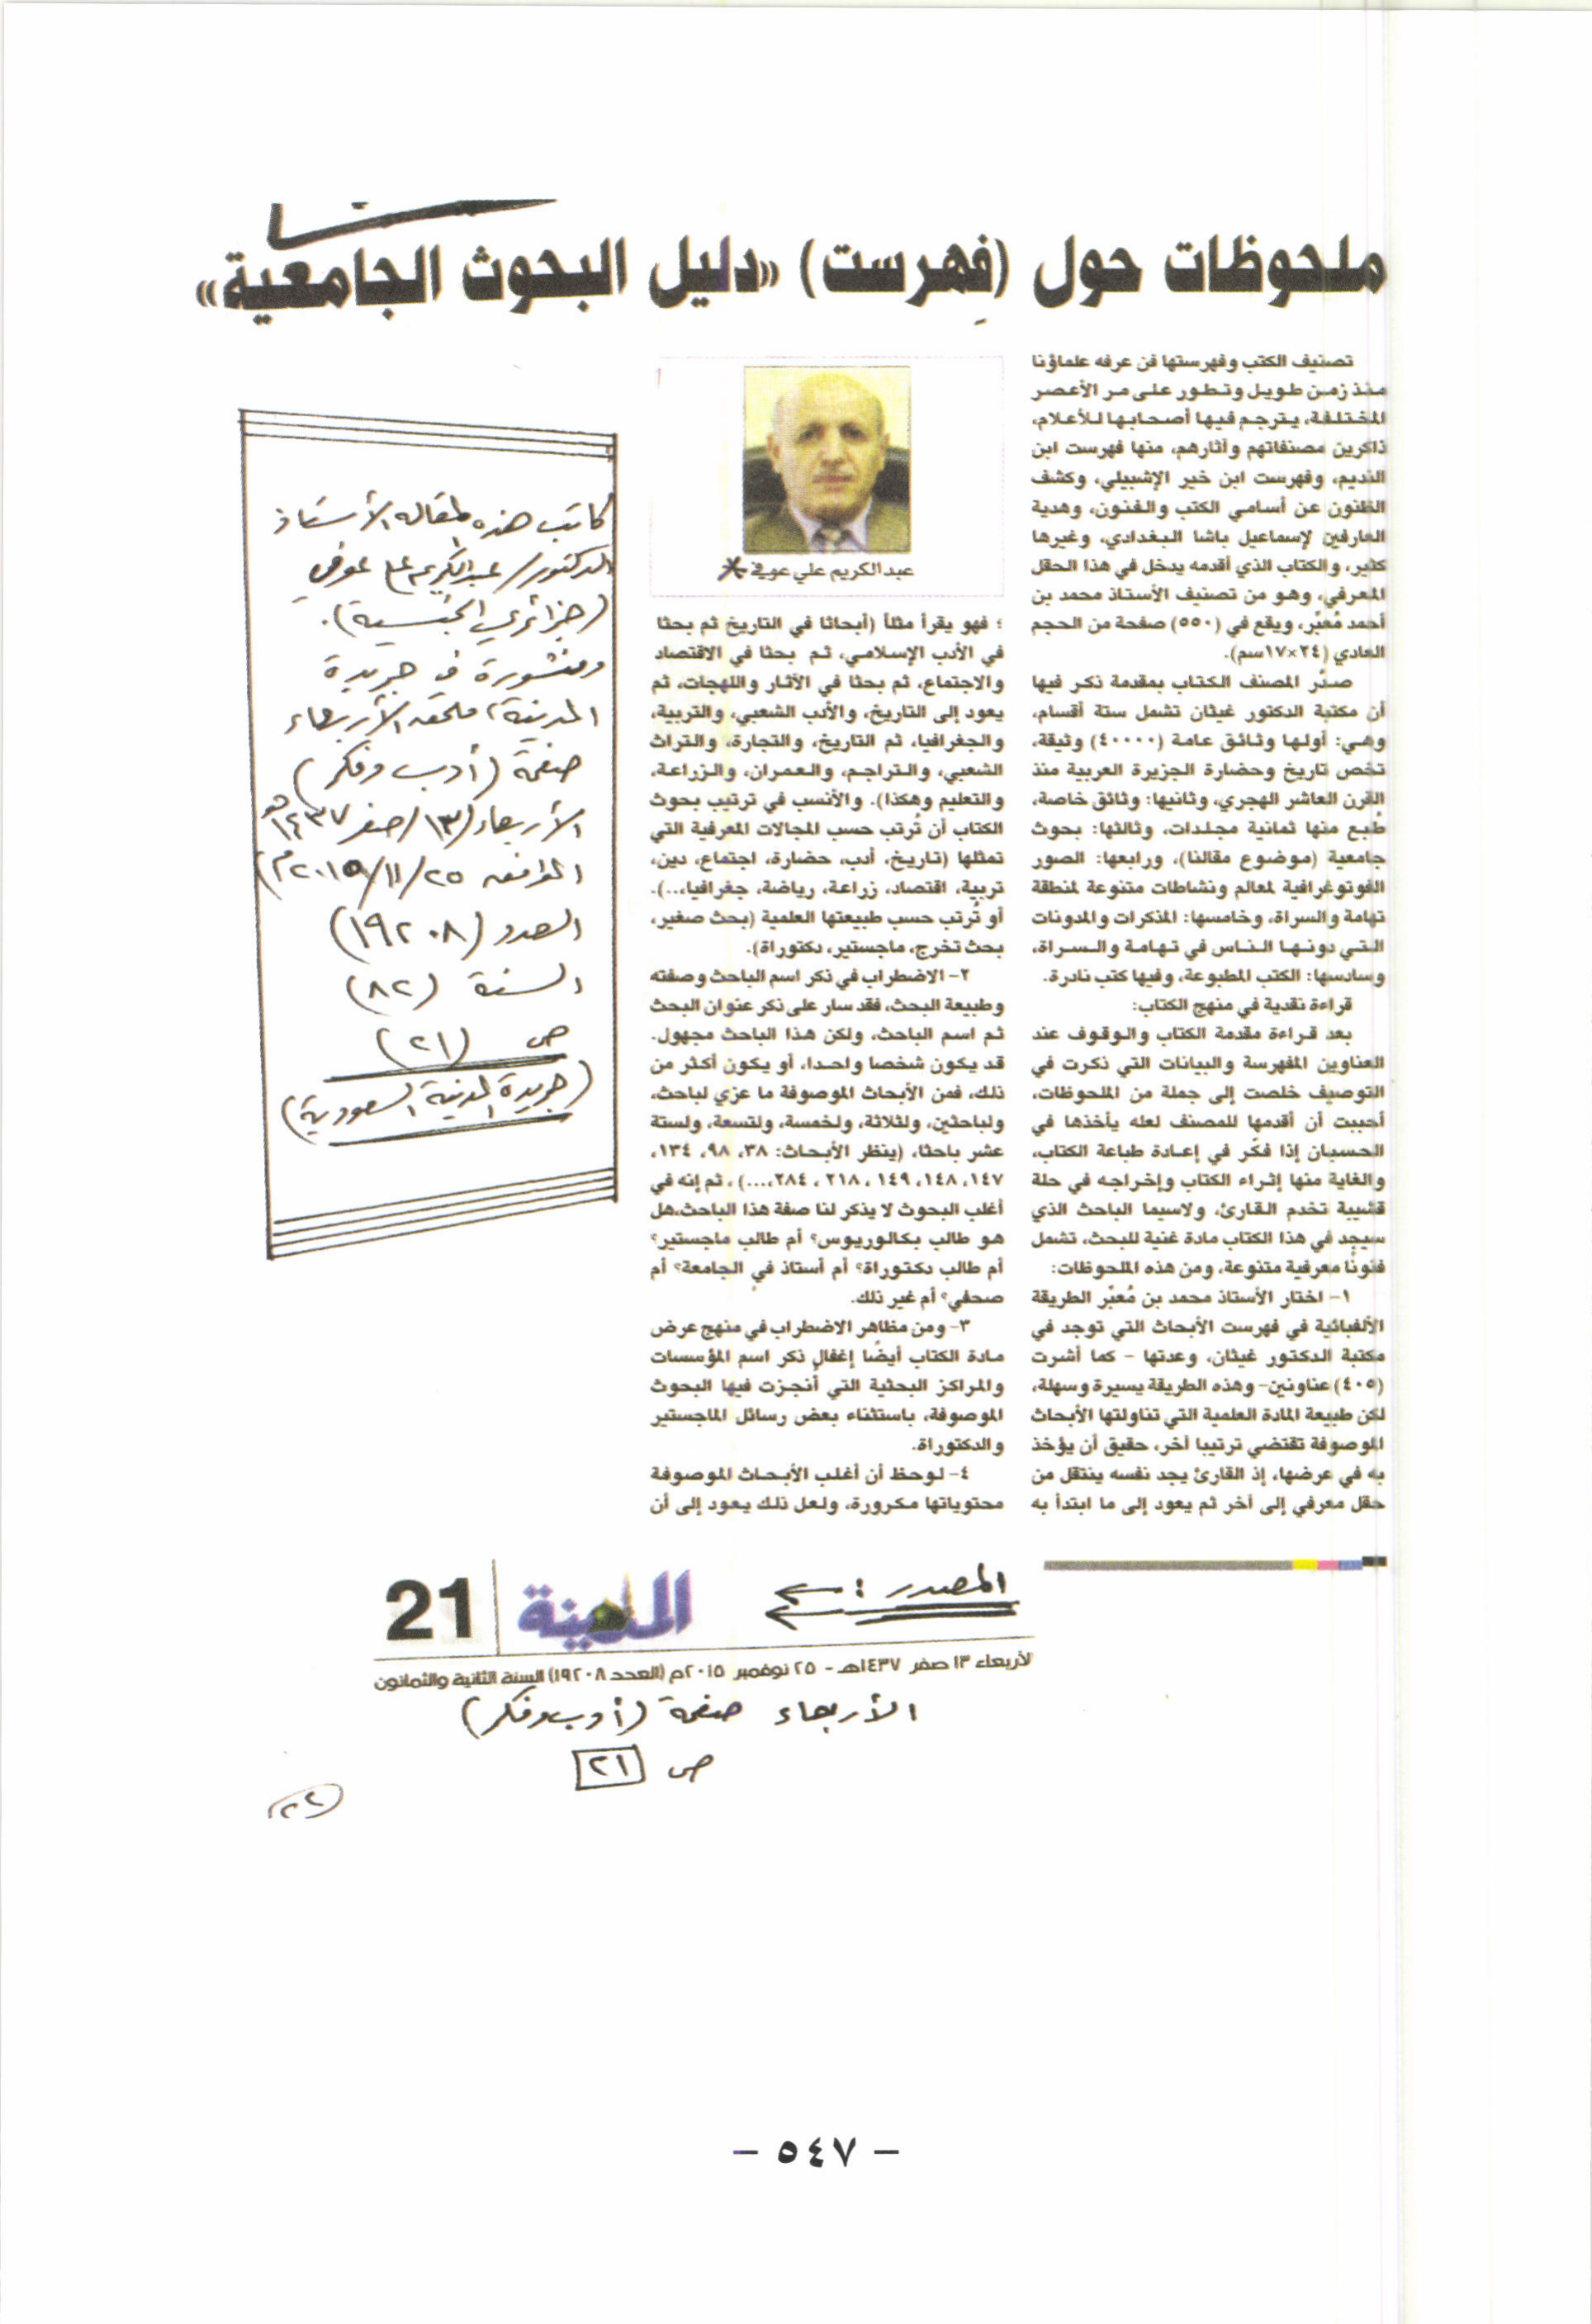 ملحوظات حول (فِهرست) «دليل البحوث الجامعية»
تصنيف الكتب وفهرستها فن عرفه علماؤنا
منذ زمن طويل وتطور على مر الأعصر
المختلفة، يترجم فيها أصحابها للأعلام،
ذاكرين مصنفاتهم وآثارهم، منها فهرست ابن
النديم، وفهرست ابن خير الإشبيلي، وكشف
الظنون عن أسامي الكتب والفنون، وهدية
العارفين لإسماعيل باشا البغدادي، وغيرها
كثير، والكتاب الذي أقدمه يدخل في هذا الحقل
المعرفي، وهو من تصنيف الأستاذ محمد بن
أحمد مُعبّر، ويقع في (٥٥٠) صفحة من الحجم
العادي (٢٤×١٧سم).
صدّر المصنف الكتاب بمقدمة ذكر فيها
أن مكتبة الدكتور غيثان تشمل ستة أقسام،
وهي: أولها وثائق عامة (٤٠٠٠٠) وثيقة،
تخص تاريخ وحضارة الجزيرة العربية منذ
القرن العاشر الهجري، وثانيها: وثائق خاصة،
طُبع منها ثمانية مجلدات، وثالثها: بحوث
جامعية (موضوع مقالنا)، ورابعها: الصور
الفوتوغرافية لمعالم ونشاطات متنوعة لمنطقة
تهامة والسراة، وخامسها: المذكرات والمدونات
التي دونها الناس في تهامة والسراة،
وسادسها: الكتب المطبوعة، وفيها كتب نادرة.
قراءة نقدية في منهج الكتاب:
بعد قراءة مقدمة الكتاب والوقوف عند
العناوين المفهرسة والبيانات التي ذكرت في
التوصيف خلصت إلى جملة من الملحوظات،
أحببت أن أقدمها للمصنف لعله يأخذها في
الحسبان إذا فكّر في إعادة طباعة الكتاب،
والغاية منها إثراء الكتاب وإخراجه في حلة
قشيبة تخدم القارئ، ولاسيما الباحث الذي
سيجد في هذا الكتاب مادة غنية للبحث، تشمل
فنونًا معرفية متنوعة، ومن هذه الملحوظات:
١- اختار الأستاذ محمد بن مُعبّر الطريقة
الألفبائية في فهرست الأبحاث التي توجد في
مكتبة الدكتور غيثان، وعدتها - كما أشرت
(٤٠٥) عناونين- وهذه الطريقة يسيرة وسهلة،
لكن طبيعة المادة العلمية التي تناولتها الأبحاث
الموصوفة تقتضي ترتيبا آخر، حقيق أن يؤخذ
به في عرضها، إذ القارئ يجد نفسه ينتقل من
حقل معرفي إلى آخر ثم يعود إلى ما ابتدأ به
عبدالكريم علي عوفي
؛ فهو يقرأ مثلاً (أبحاثا في التاريخ ثم بحثا
في الأدب الإسلامي، ثم بحثا في الاقتصاد
والاجتماع، ثم بحثا في الآثار واللهجات، ثم
يعود إلى التاريخ، والأدب الشعبي، والتربية،
والجغرافيا، ثم التاريخ، والتجارة، والتراث
الشعبي، والتراجم، والعمران، والزراعة،
والتعليم وهكذا). والأنسب في ترتيب بحوث
الكتاب أن تُرتب حسب المجالات المعرفية التي
تمثلها (تاريخ، أدب، حضارة، اجتماع، دين،
تربية، اقتصاد، زراعة، رياضة، جغرافيا،..).
أو تُرتب حسب طبيعتها العلمية (بحث صغير،
بحث تخرج، ماجستير، دكتوراة).
٢- الاضطراب في ذكر اسم الباحث وصفته
وطبيعة البحث، فقد سار على ذكر عنوان البحث
ثم اسم الباحث، ولكن هذا الباحث مجهول.
قد يكون شخصا واحدا، أو يكون أكثر من
ذلك، فمن الأبحاث الموصوفة ما عزي لباحث،
ولباحثين، ولثلاثة، ولخمسة، ولتسعة، ولستة
عشر باحثا، (ينظر الأبحاث: ٣٨، ٩٨، ١٣٤،
١٤٧، ١٤٨، ١٤٩، ٢١٨، ٢٨٤،...)، ثم إنه في
أغلب البحوث لا يذكر لنا صفة هذا الباحث،هل
هو طالب بكالوريوس؟ أم طالب ماجستير؟
أم طالب دكتوراة؟ أم أستاذ في الجامعة؟ أم
صحفي؟ أم غير ذلك.
٣- ومن مظاهر الاضطراب في منهج عرض
مادة الكتاب أيضًا إغفال ذكر اسم المؤسسات
والمراكز البحثية التي أنجزت فيها البحوث
الموصوفة، باستثناء بعض رسائل الماجستير
والدكتوراة.
٤- لوحظ أن أغلب الأبحاث الموصوفة
محتوياتها مكرورة، ولعل ذلك يعود إلى أن
كاتب هذه المقالة الأستاذ
الدكتور/ عبدالكريم علي عوفي
(جزائري الجنسية).
ومنشورة في جريدة
المدينة، ملحق الأربعاء
صفحة (أدب وفكر)
الأربعاء (١٣/صفر/١٤٣٧هـ
الموافق ٢٥/١١/٢٠١٥م)
العدد (١٩٢٠٨)
السنة (٨٢)
ص (٢١)
(جريدة المدينة السعودية)
المصدر:
المدينة 21
لأربعاء ١٣ صفر ١٤٣٧هـ - ٢٥ نوفمبر ٢٠١٥م (العدد ١٩٢٠٨) السنة الثانية والثمانون
الأربعاء صفحة (أدب وفكر)
ص ٢١
(٢٢)
- ٥٤٧ -